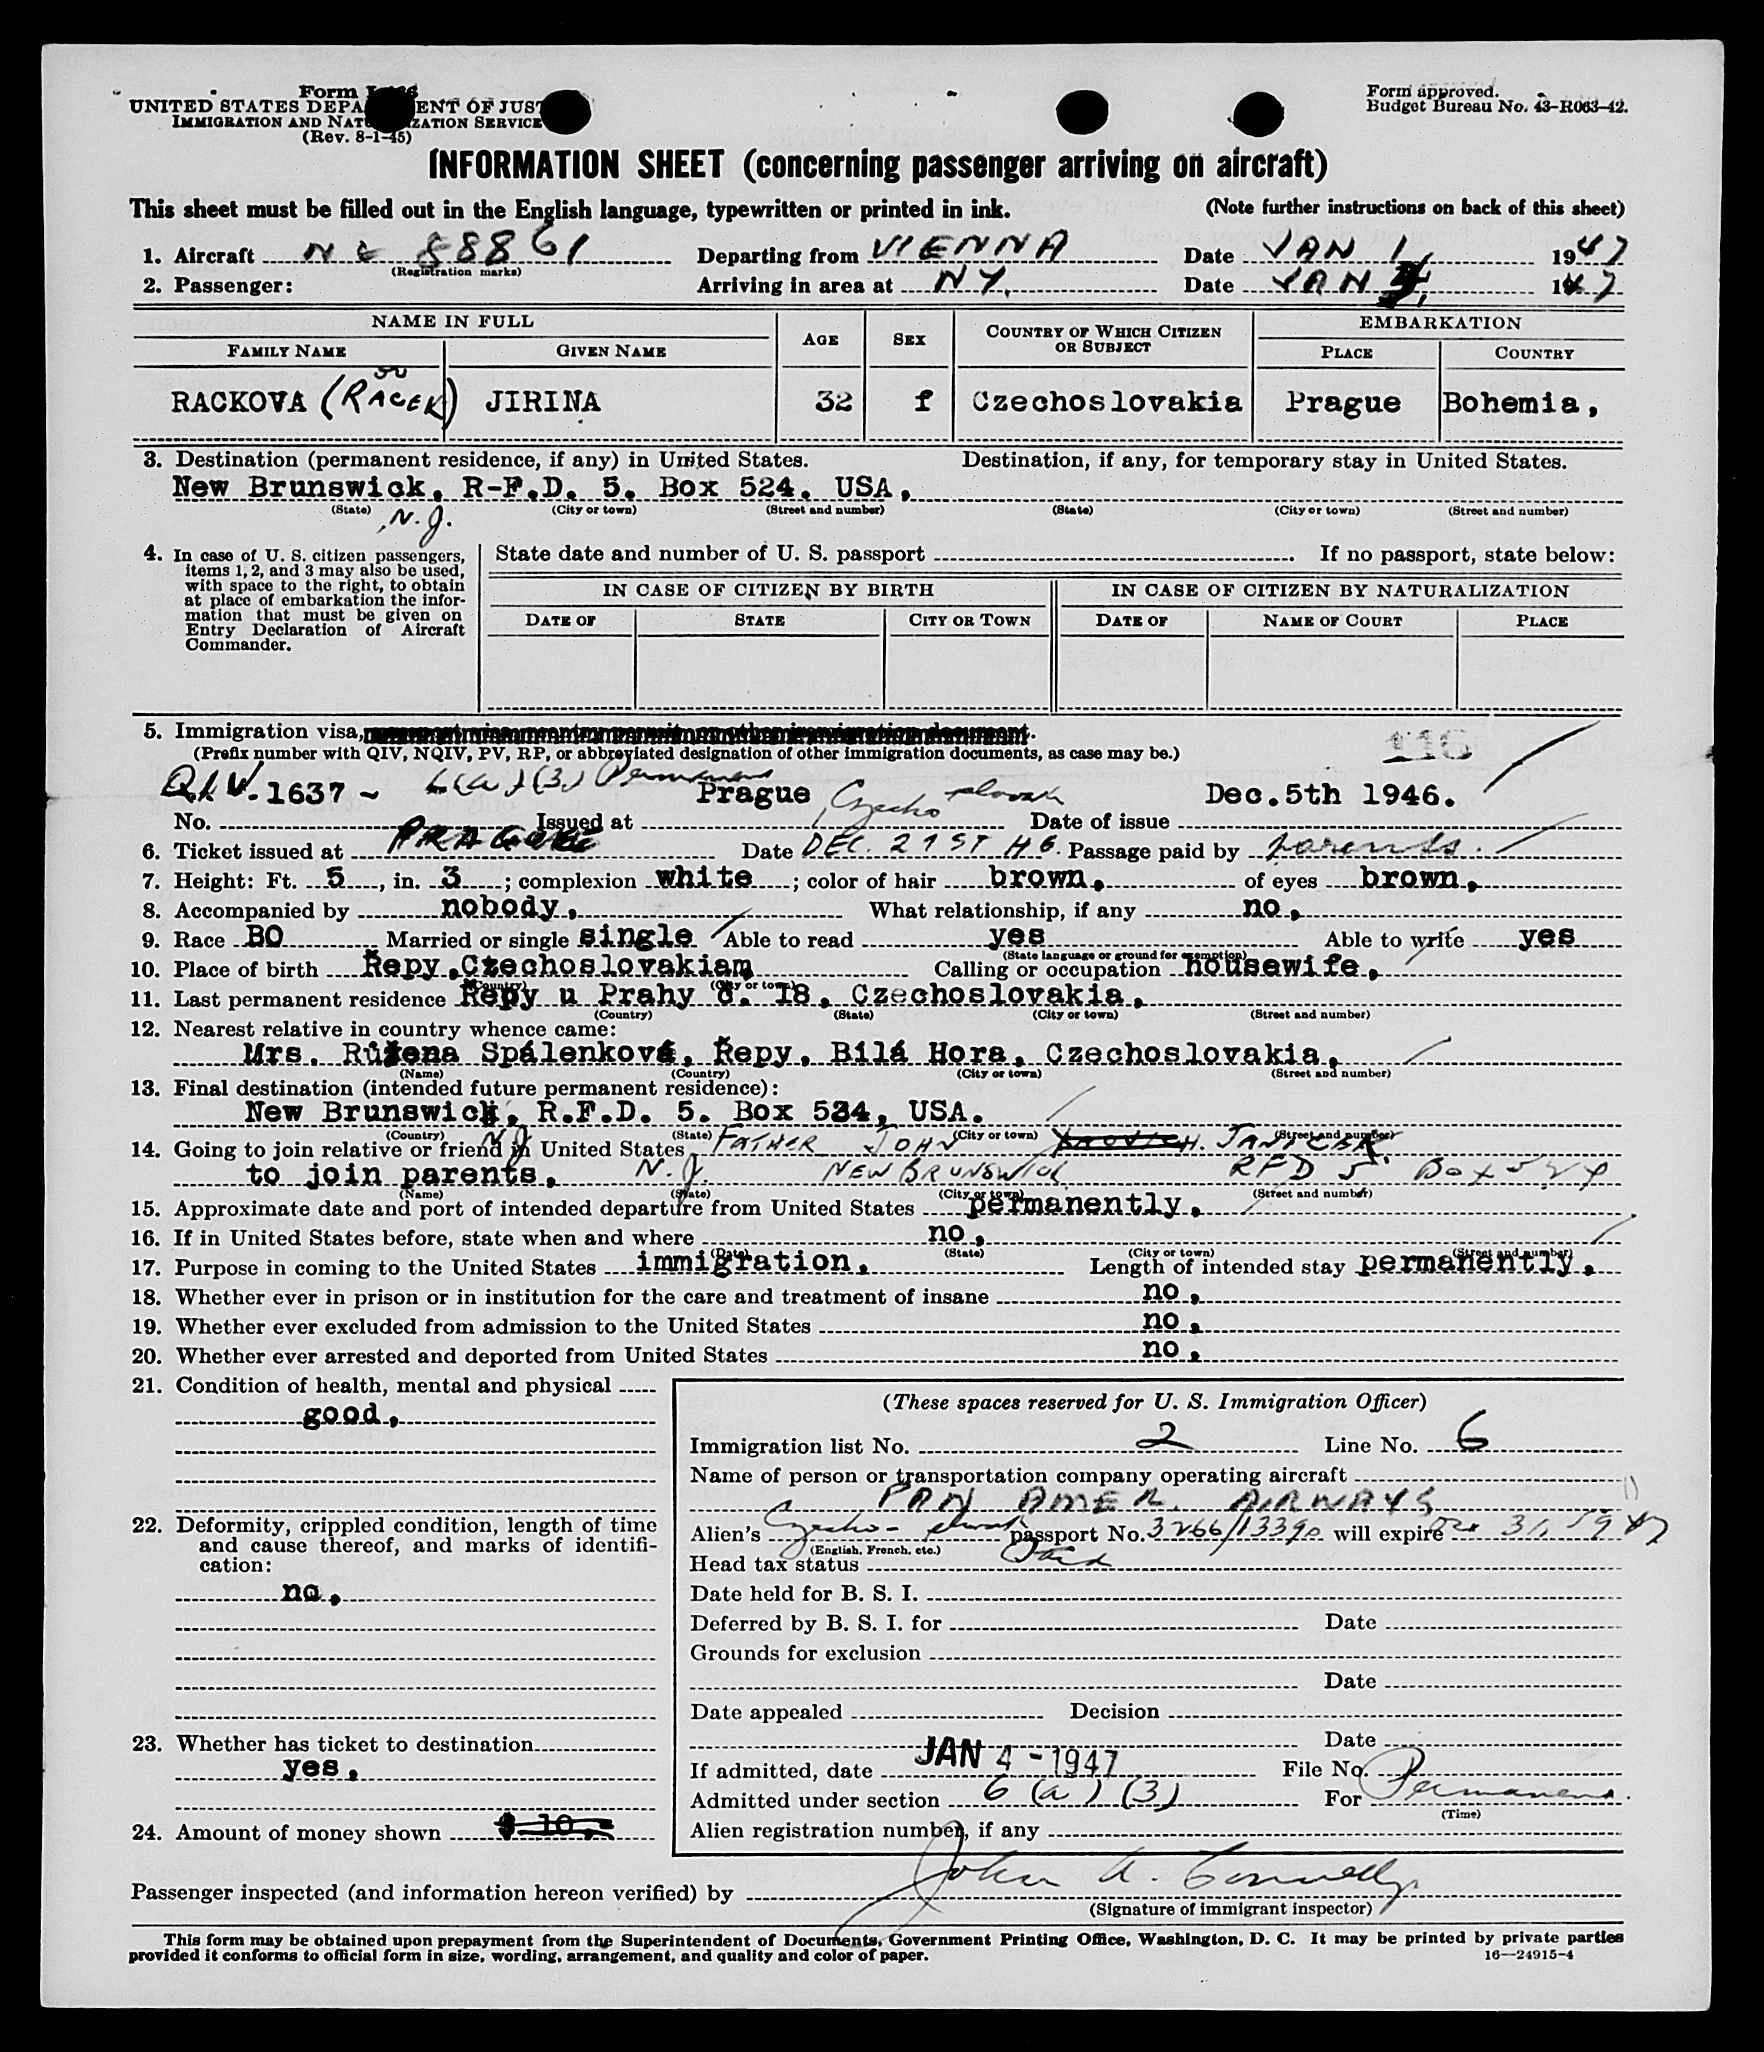 Form I-466
UNITED STATES DEPARTMENT OF JUSTICE
IMMIGRATION AND NATURALIZATION SERVICE
(Rev. 8-1-45)
Form approved.
Budget Bureau No. 43-R063-42.
INFORMATION SHEET (concerning passenger arriving on aircraft)
This sheet must be filled out in the English language, typewritten or printed in ink. (Note further instructions on back of this sheet)
1. Aircraft NC 88861 Departing from VIENNA Date JAN 1, 1947
(Registration marks)
2. Passenger: Arriving in area at NY. Date JAN 1947
NAME IN FULL AGE SEX COUNTRY OF WHICH CITIZEN OR SUBJECT EMBARKATION
FAMILY NAME GIVEN NAME PLACE COUNTRY
RACKOVA (RACEK) JIRINA 32 f Czechoslovakia Prague Bohemia,
3. Destination (permanent residence, if any) in United States. Destination, if any, for temporary stay in United States.
New Brunswick, R-F.D. 5. Box 524. USA,
(State) (City or town) (Street and number) (State) (City or town) (Street and number)
, N.J.
4. In case of U. S. citizen passengers, items 1, 2, and 3 may also be used, with space to the right, to obtain at place of embarkation the information that must be given on Entry Declaration of Aircraft Commander.
State date and number of U. S. passport. If no passport, state below:
IN CASE OF CITIZEN BY BIRTH IN CASE OF CITIZEN BY NATURALIZATION
DATE OF STATE CITY OR TOWN DATE OF NAME OF COURT PLACE
5. Immigration visa,
(Prefix number with QIV, NQIV, PV, RP, or abbreviated designation of other immigration documents, as case may be.)
116
Q.I.V. 1637 ~ 6(a)(3) Permanent Prague, Czechoslovak Dec.5th 1946.
No. Issued at Date of issue
6. Ticket issued at PRAGUE Date DEC. 21ST 46. Passage paid by parents.
7. Height: Ft. 5, in. 3; complexion white; color of hair brown, of eyes brown,
8. Accompanied by nobody, What relationship, if any no,
9. Race BO Married or single single Able to read yes Able to write yes
(State language or ground for exemption)
10. Place of birth Řepy,Czechoslovakia Calling or occupation housewife,
(Country) (City or town)
11. Last permanent residence Řepy u Prahy č. 18, Czechoslovakia,
(Country) (State) (City or town) (Street and number)
12. Nearest relative in country whence came:
Mrs. Růžena Spálenková, Řepy, Bílá Hora, Czechoslovakia,
(Name) (Country) (City or town) (Street and number)
13. Final destination (intended future permanent residence):
New Brunswick, R.F.D. 5. Box 524, USA.
(Country) N.J. (State) (City or town) (Street and number)
14. Going to join relative or friend in United States FATHER JOHN H. JANECEK
to join parents, N.J. NEW BRUNSWICK RFD 5 Box 524
(Name) (State) (City or town) (Street and number)
15. Approximate date and port of intended departure from United States permanently,
16. If in United States before, state when and where no,
(Date) (State) (City or town) (Street and number)
17. Purpose in coming to the United States immigration, Length of intended stay permanently,
18. Whether ever in prison or in institution for the care and treatment of insane no,
19. Whether ever excluded from admission to the United States no,
20. Whether ever arrested and deported from United States no,
21. Condition of health, mental and physical
good,
22. Deformity, crippled condition, length of time and cause thereof, and marks of identification:
no,
23. Whether has ticket to destination
yes,
24. Amount of money shown $ 10,-
(These spaces reserved for U. S. Immigration Officer)
Immigration list No. 2 Line No. 6
Name of person or transportation company operating aircraft
PAN AMER. AIRWAYS
Alien's Czecho-slovak passport No. 3266/1339 will expire 31, 1947
(English, French, etc.)
Head tax status Paid
Date held for B. S. I.
Deferred by B. S. I. for Date
Grounds for exclusion
Date
Date appealed Decision
Date
If admitted, date JAN 4 - 1947 File No.
Admitted under section 6 (a) (3) For Permanent.
(Time)
Alien registration number, if any
Passenger inspected (and information hereon verified) by John A. Connelly
(Signature of immigrant inspector)
This form may be obtained upon prepayment from the Superintendent of Documents, Government Printing Office, Washington, D. C. It may be printed by private parties
provided it conforms to official form in size, wording, arrangement, and quality and color of paper.
16—24915-4